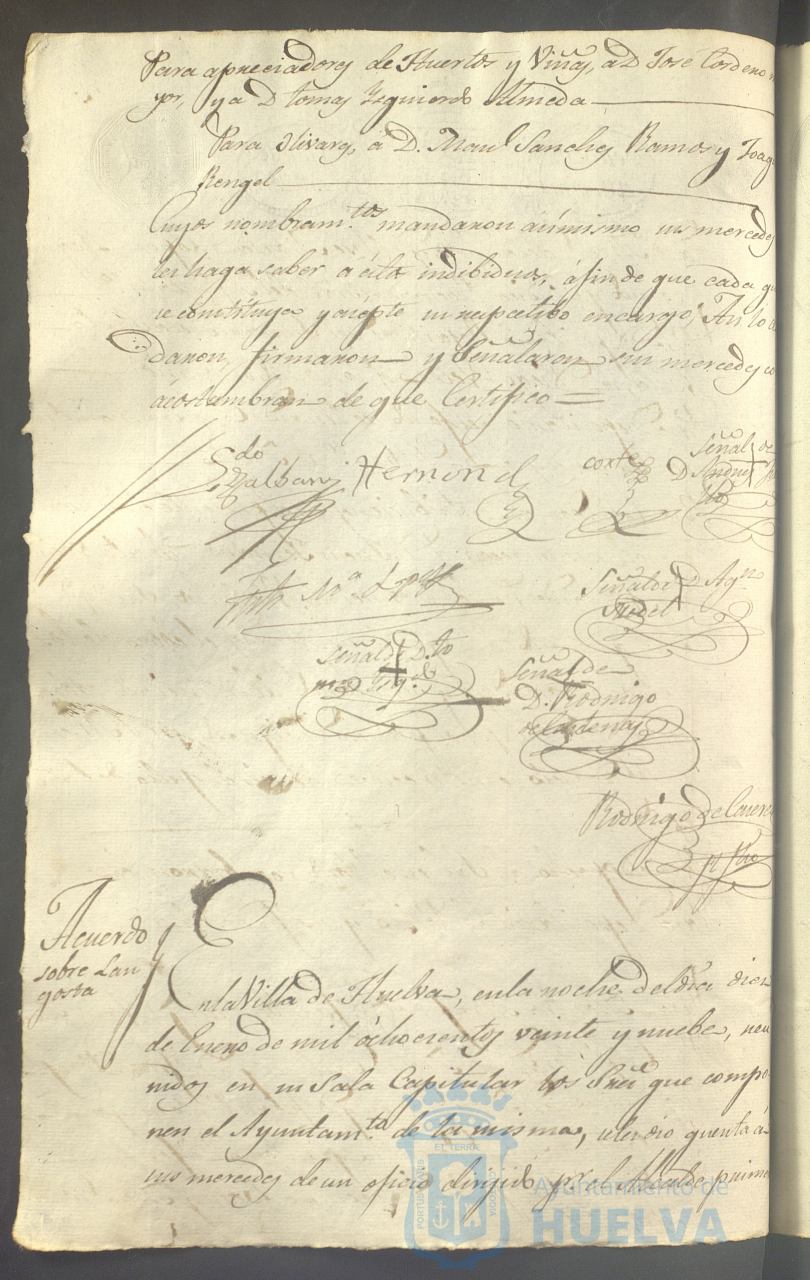 Para apreciadores de Huertos y Viñas, a D Jose Cordero ma
yor, y a D tomas Izquierdo Almeda
Para Olivares, á D. Manl Sanches Ramos y Joaqn
Rengel
Cuyos nombramtos mandaron asimismo sus mercedes
les haga saber á estos indibiduos, áfin de que cada qu
se constituya y acepte su respectibo encargo; Asi lo a
daron, firmaron y Señalaron sus mercedes co
ácostumbran de que Certifico =
Hernond
cortes
Señal de
D Andres
Señal de D Agno
Señal de D. To
mas Izqdo
Señal de
D. Rodrigo
de Cardenas
Rodrigo de
Acuerdo
sobre Lan
gosta
En la Villa de Huelva, en la noche del dia diez
de Enero de mil óchocientos veinte y nuebe, reu
nidos en su Sala Capitular los Sres que compo
nen el Ayuntamto de la misma, se les dio quenta á
sus mercedes de un oficio dirijido pr el Alcalde prime
EL TERRÆ
PORTUS MARIS
CUSTODIA
Ayuntamiento de
HUELVA